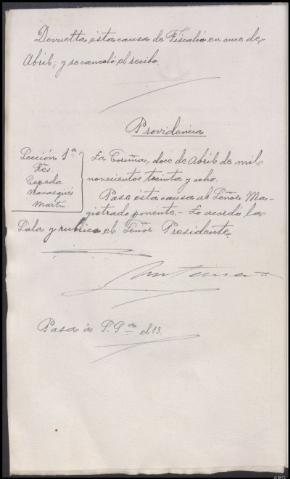 Devuelta esta causa de Fiscalía en once de
Abril; y se canceló el recibo.
Providencia
Sección 1ª
Fés.
Cepeda
Martín
La Coruña, doce de Abril de mil
novecientos treinta y ocho.
Pase esta causa al Señor Ma-
gistrado ponente.- Lo acordó la
Sala y rubrica el Señor Presidente.
Pasa a
el 13.